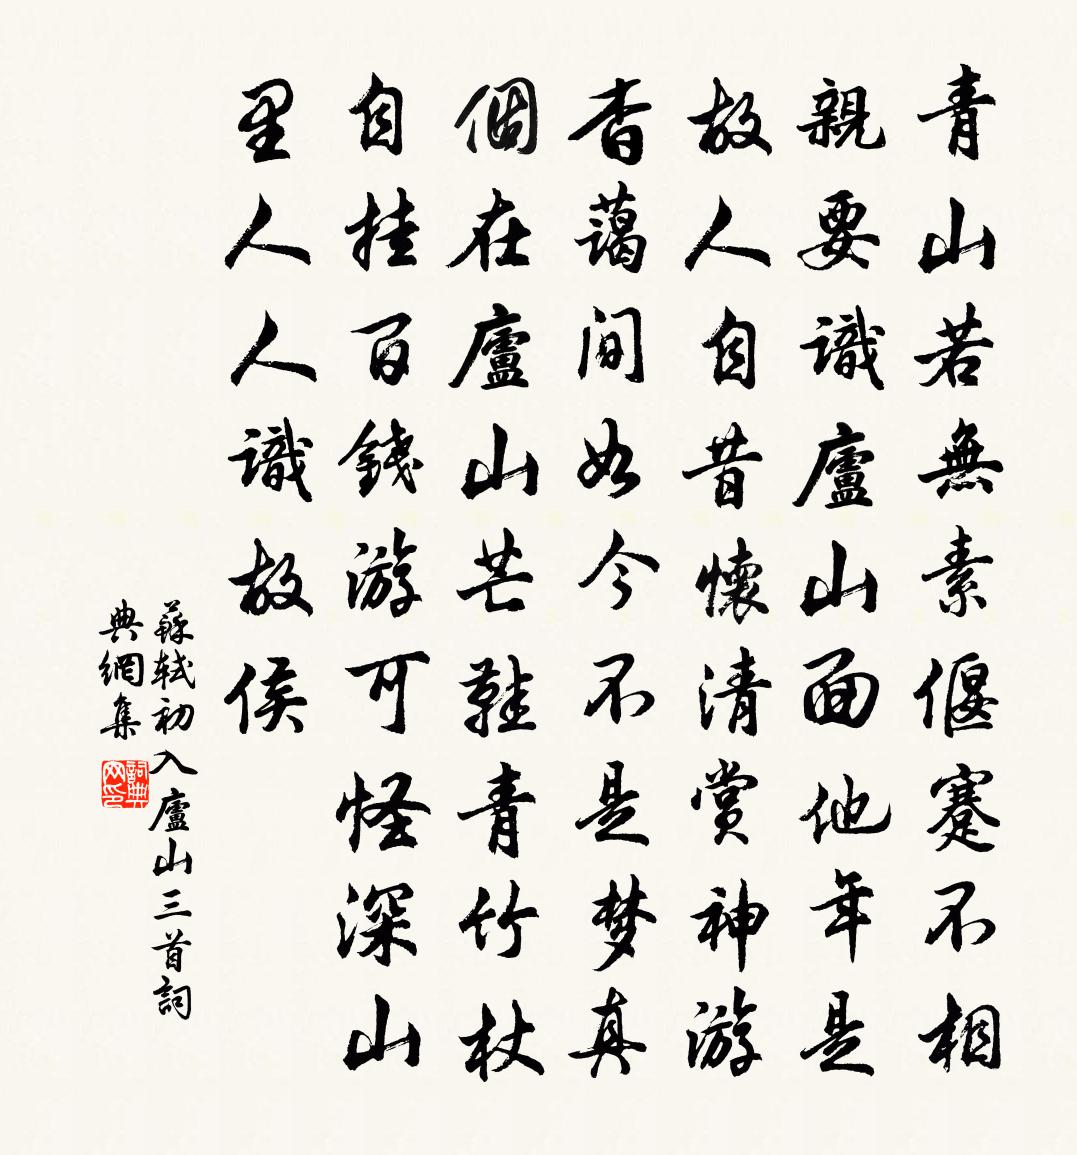 青山若無素偃蹇不相
親要識廬山面他年是
故人自昔懷清賞神游
杳藹間如今不是梦真
個在廬山芒鞋青竹杖
自挂百錢游可怪深山
里人人識故侯
蘇軾初入廬山三首詞
典網集
詞典網印